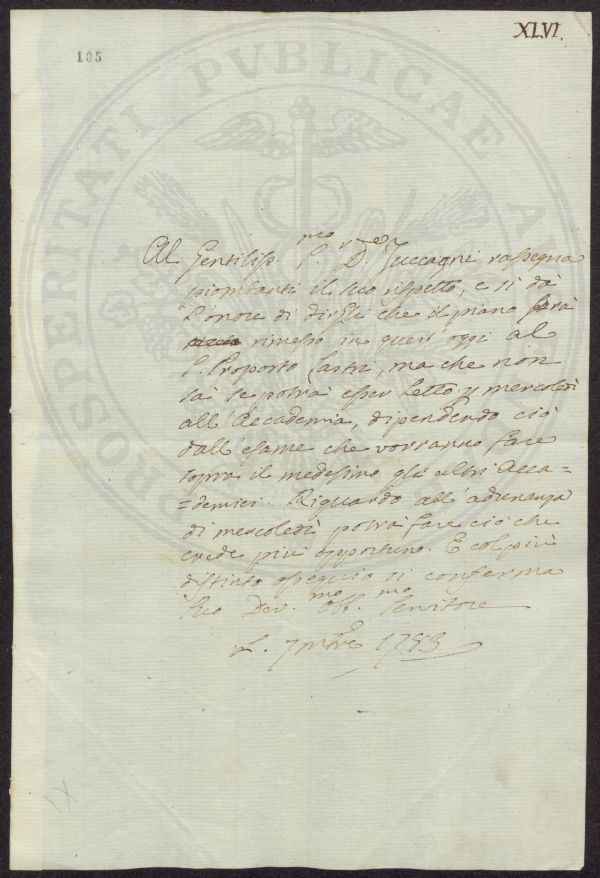 XLVI.
105
PROSPERITATI PVBLICAE A
Al Gentiliss.mo S.r D.re Zuccagni rassegna
il suo rispetto, e si dà
l'onore di dirgli che il piano sarà
rimesso in quest'oggi al
S. Proposto Lastri, ma che non
sà se potrà esser letto p mercoledì
all'Accademia, dipendendo ciò
dall'esame che vorranno fare
sopra il medesimo gli altri Acca=
=demici. Riguardo all'adunanza
di mercoledì potrà fare ciò che
crede più opportuno. E col più
distinto ossequio si conferma
Suo Dev.mo Obb.mo Servitore
7mbre 1783